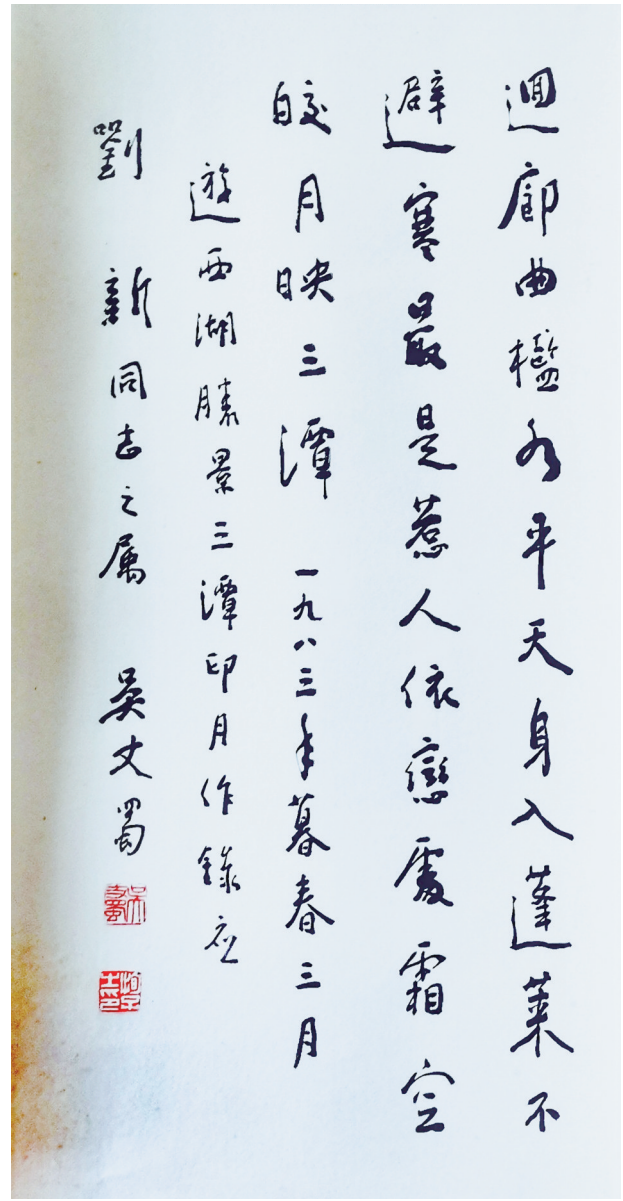 迴廊曲檻水平天身入蓬萊不
避寒最是惹人依戀處霜空
皎月映三潭 一九八三年暮春三月
遊西湖勝景三潭印月作錄應
劉新同志之属 吳丈蜀